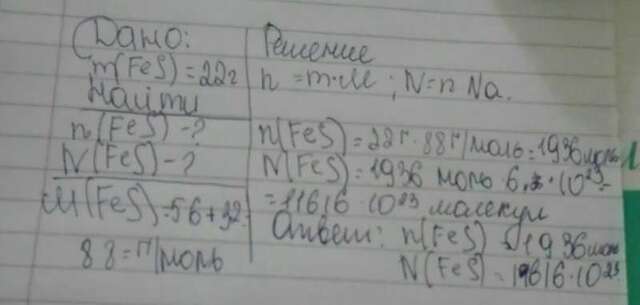 Дано:
m(FeS)=22г
Найти
n(FeS)-?
N(FeS)-?
M(FeS)=56+32
88=г/моль
Решение
n=m·M; N=n Na.
n(FeS)=22г·88г/моль=1936моль
N(FeS)=1936 моль·6,·10²³=
=11616·10²³ молекул
Ответ: n(FeS)=1936моль
N(FeS)=11616·10²³